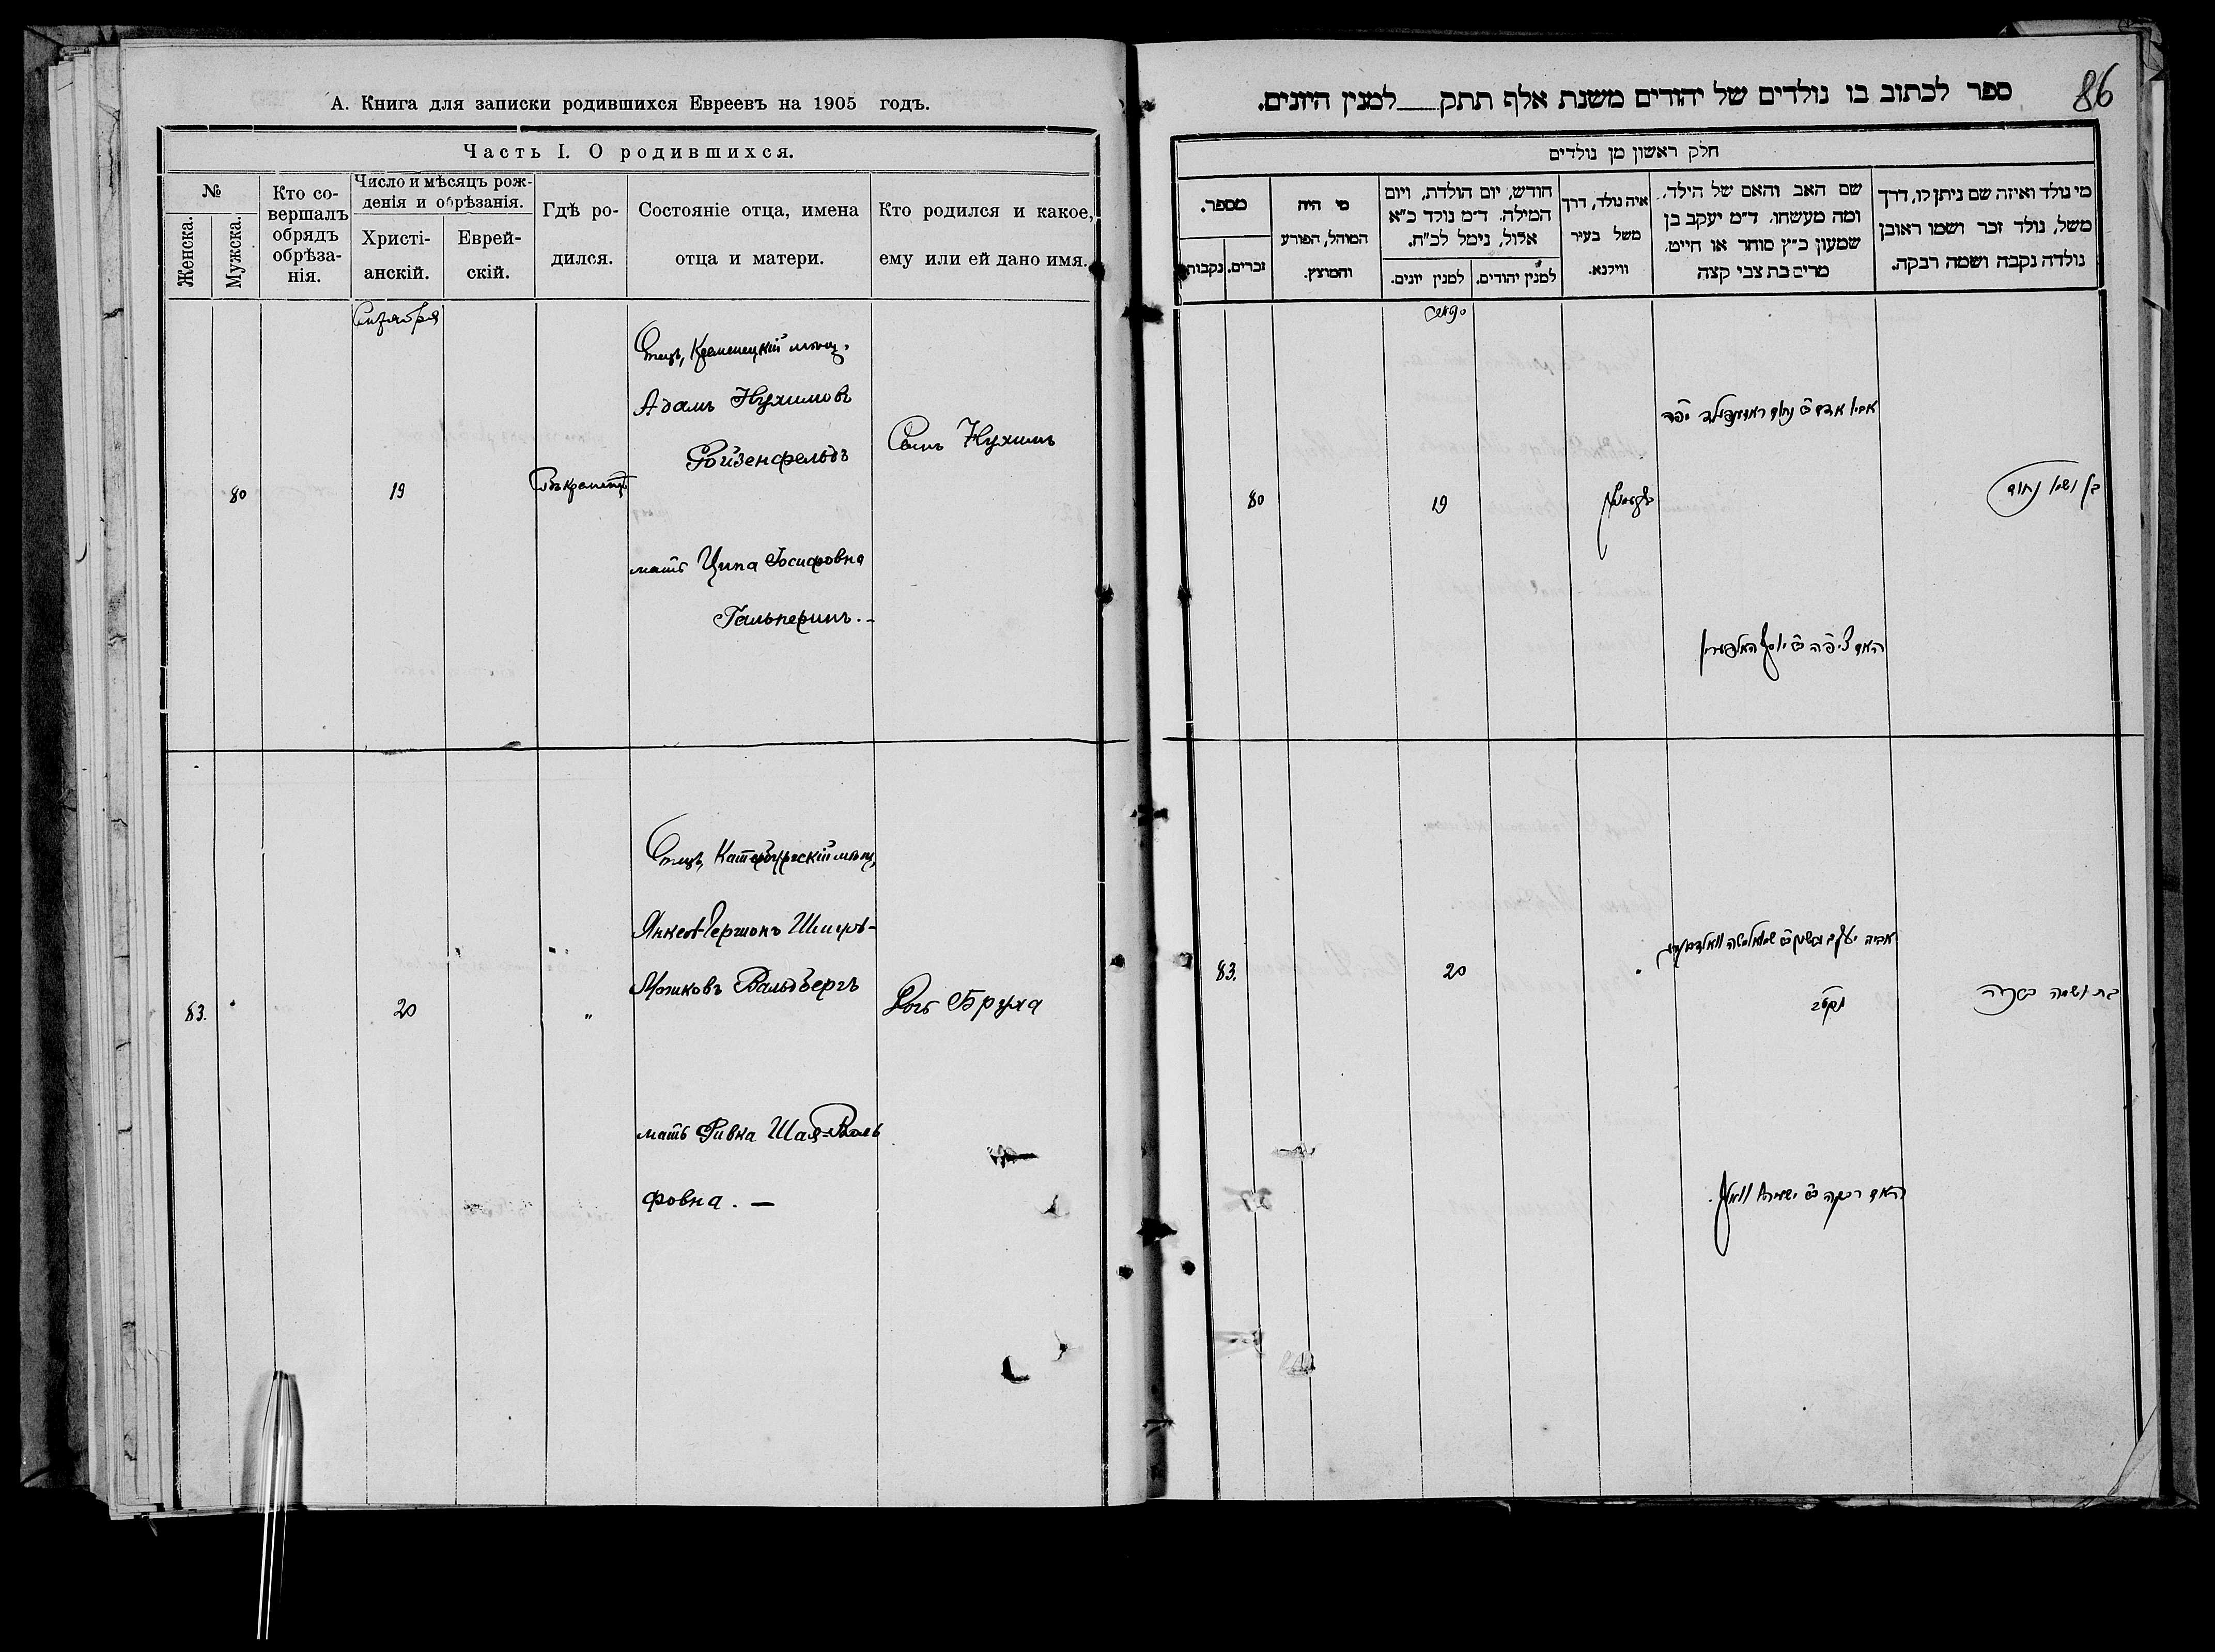 А. Книга для записки родившихся Евреевъ на 1905 годъ.
Часть I. О родившихся.
№
Женска.
Мужска.
Кто со-
вершалъ
обрядъ
обрѣза-
нія.
Число и мѣсяцъ рож-
денія и обрѣзанія.
Христі-
анскій.
Еврей-
скій.
Гдѣ ро-
дился.
Состояніе отца, имена
отца и матери.
Кто родился и какое,
ему или ей дано имя.
Сентября
80
19
Отецъ, Кременецкій мѣщ.
Адамъ Нухимовъ
Ройзенфельдъ
мать Ципа Іосифовна
Гальперинъ. –
Сынъ Нухимъ
83.
20
"
Отецъ, Катербургскій мѣщ,
Янкель Гершонъ Шмуль-
Мошковъ Вальдбергъ
мать Ривка Шая-Воль
фовна. —
Дочь Бруха
86
ספר לכתוב בו נולדים של יהודים משנת אלף תתק למנין היונים.
חלק ראשון מן נולדים
מספר.
נקבות
זכרים.
מי היה
המוהל, הפורע
והמוצץ.
חודש, יום הולדת, ויום
המילה. ד״מ נולד כ״א
אלול, נימל לכ״ח.
למנין יונים.
למנין יהודים.
איה נולד, דרך
משל בעיר
ווילנא.
שם האב והאם של הילד.
ומה מעשהו. ד״מ יעקב בן
שמעון כ״ץ סוחר או חייט.
מרים בת צבי קצה
מי נולד ואיזה שם ניתן לו, דרך
משל, נולד זכר ושמו ראובן
נולדה נקבה ושמה רבקה.
80
19
אביו אדם ב נחום
האם ציפה ב יוסף האלפערין
בן ושמו נחום
83.
20
אביה יעקב
האם רבקה ב ישעיה וואלף
בת ושמה ברכה